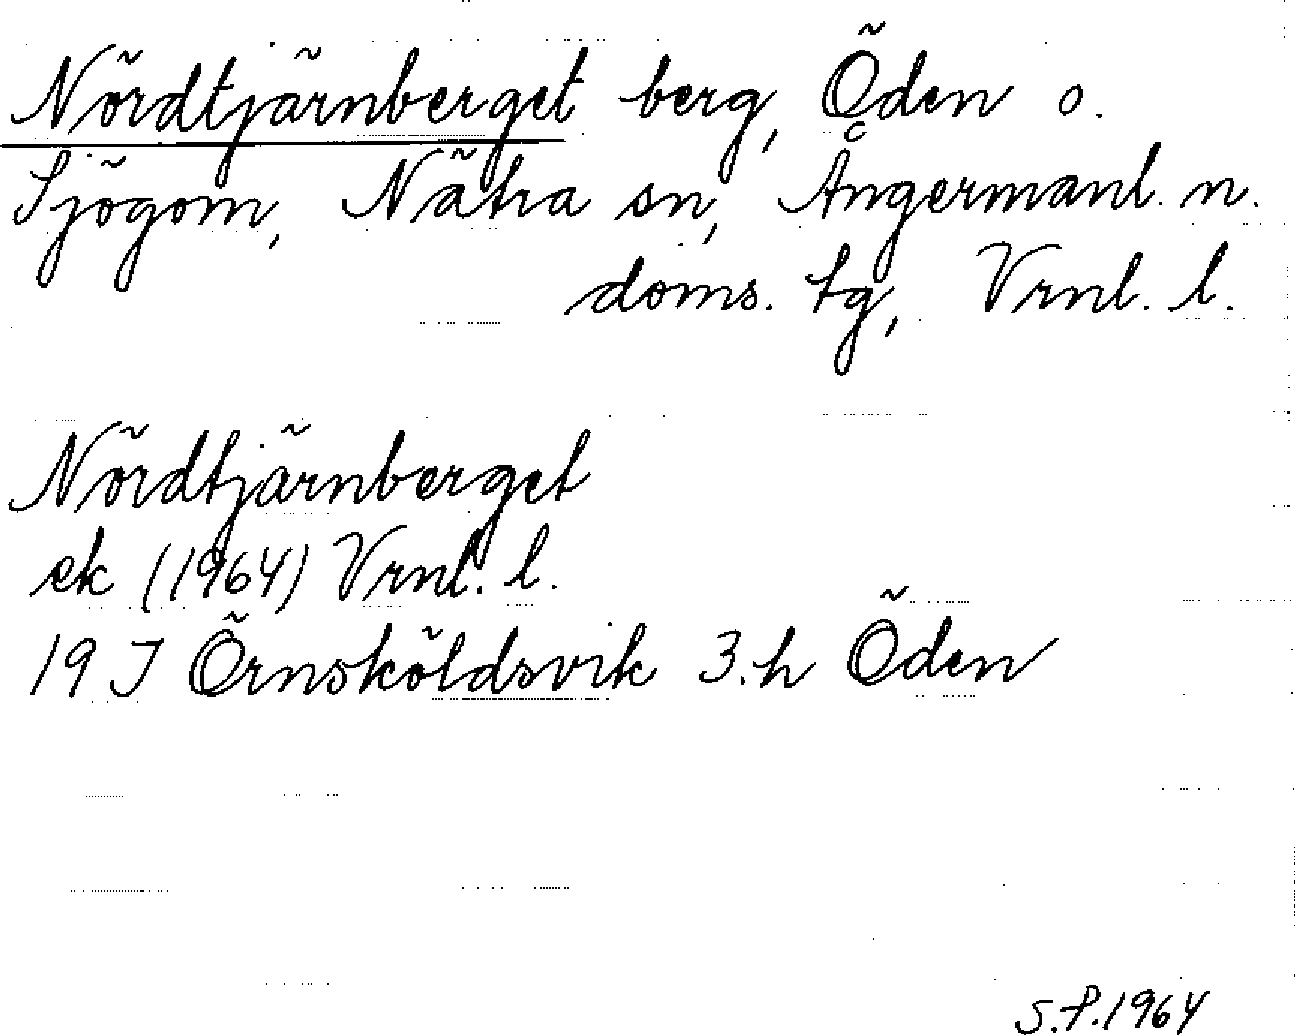 Nördtjärnberget berg, Öden o.
Sjögom, Nätra sn, Ångermanl. n.
doms. tg, Vrnl. l.
Nördtjärnberget
ek (1964) Vrnl. l.
19 J Örnsköldsvik 3.h Öden
S.P. 1964